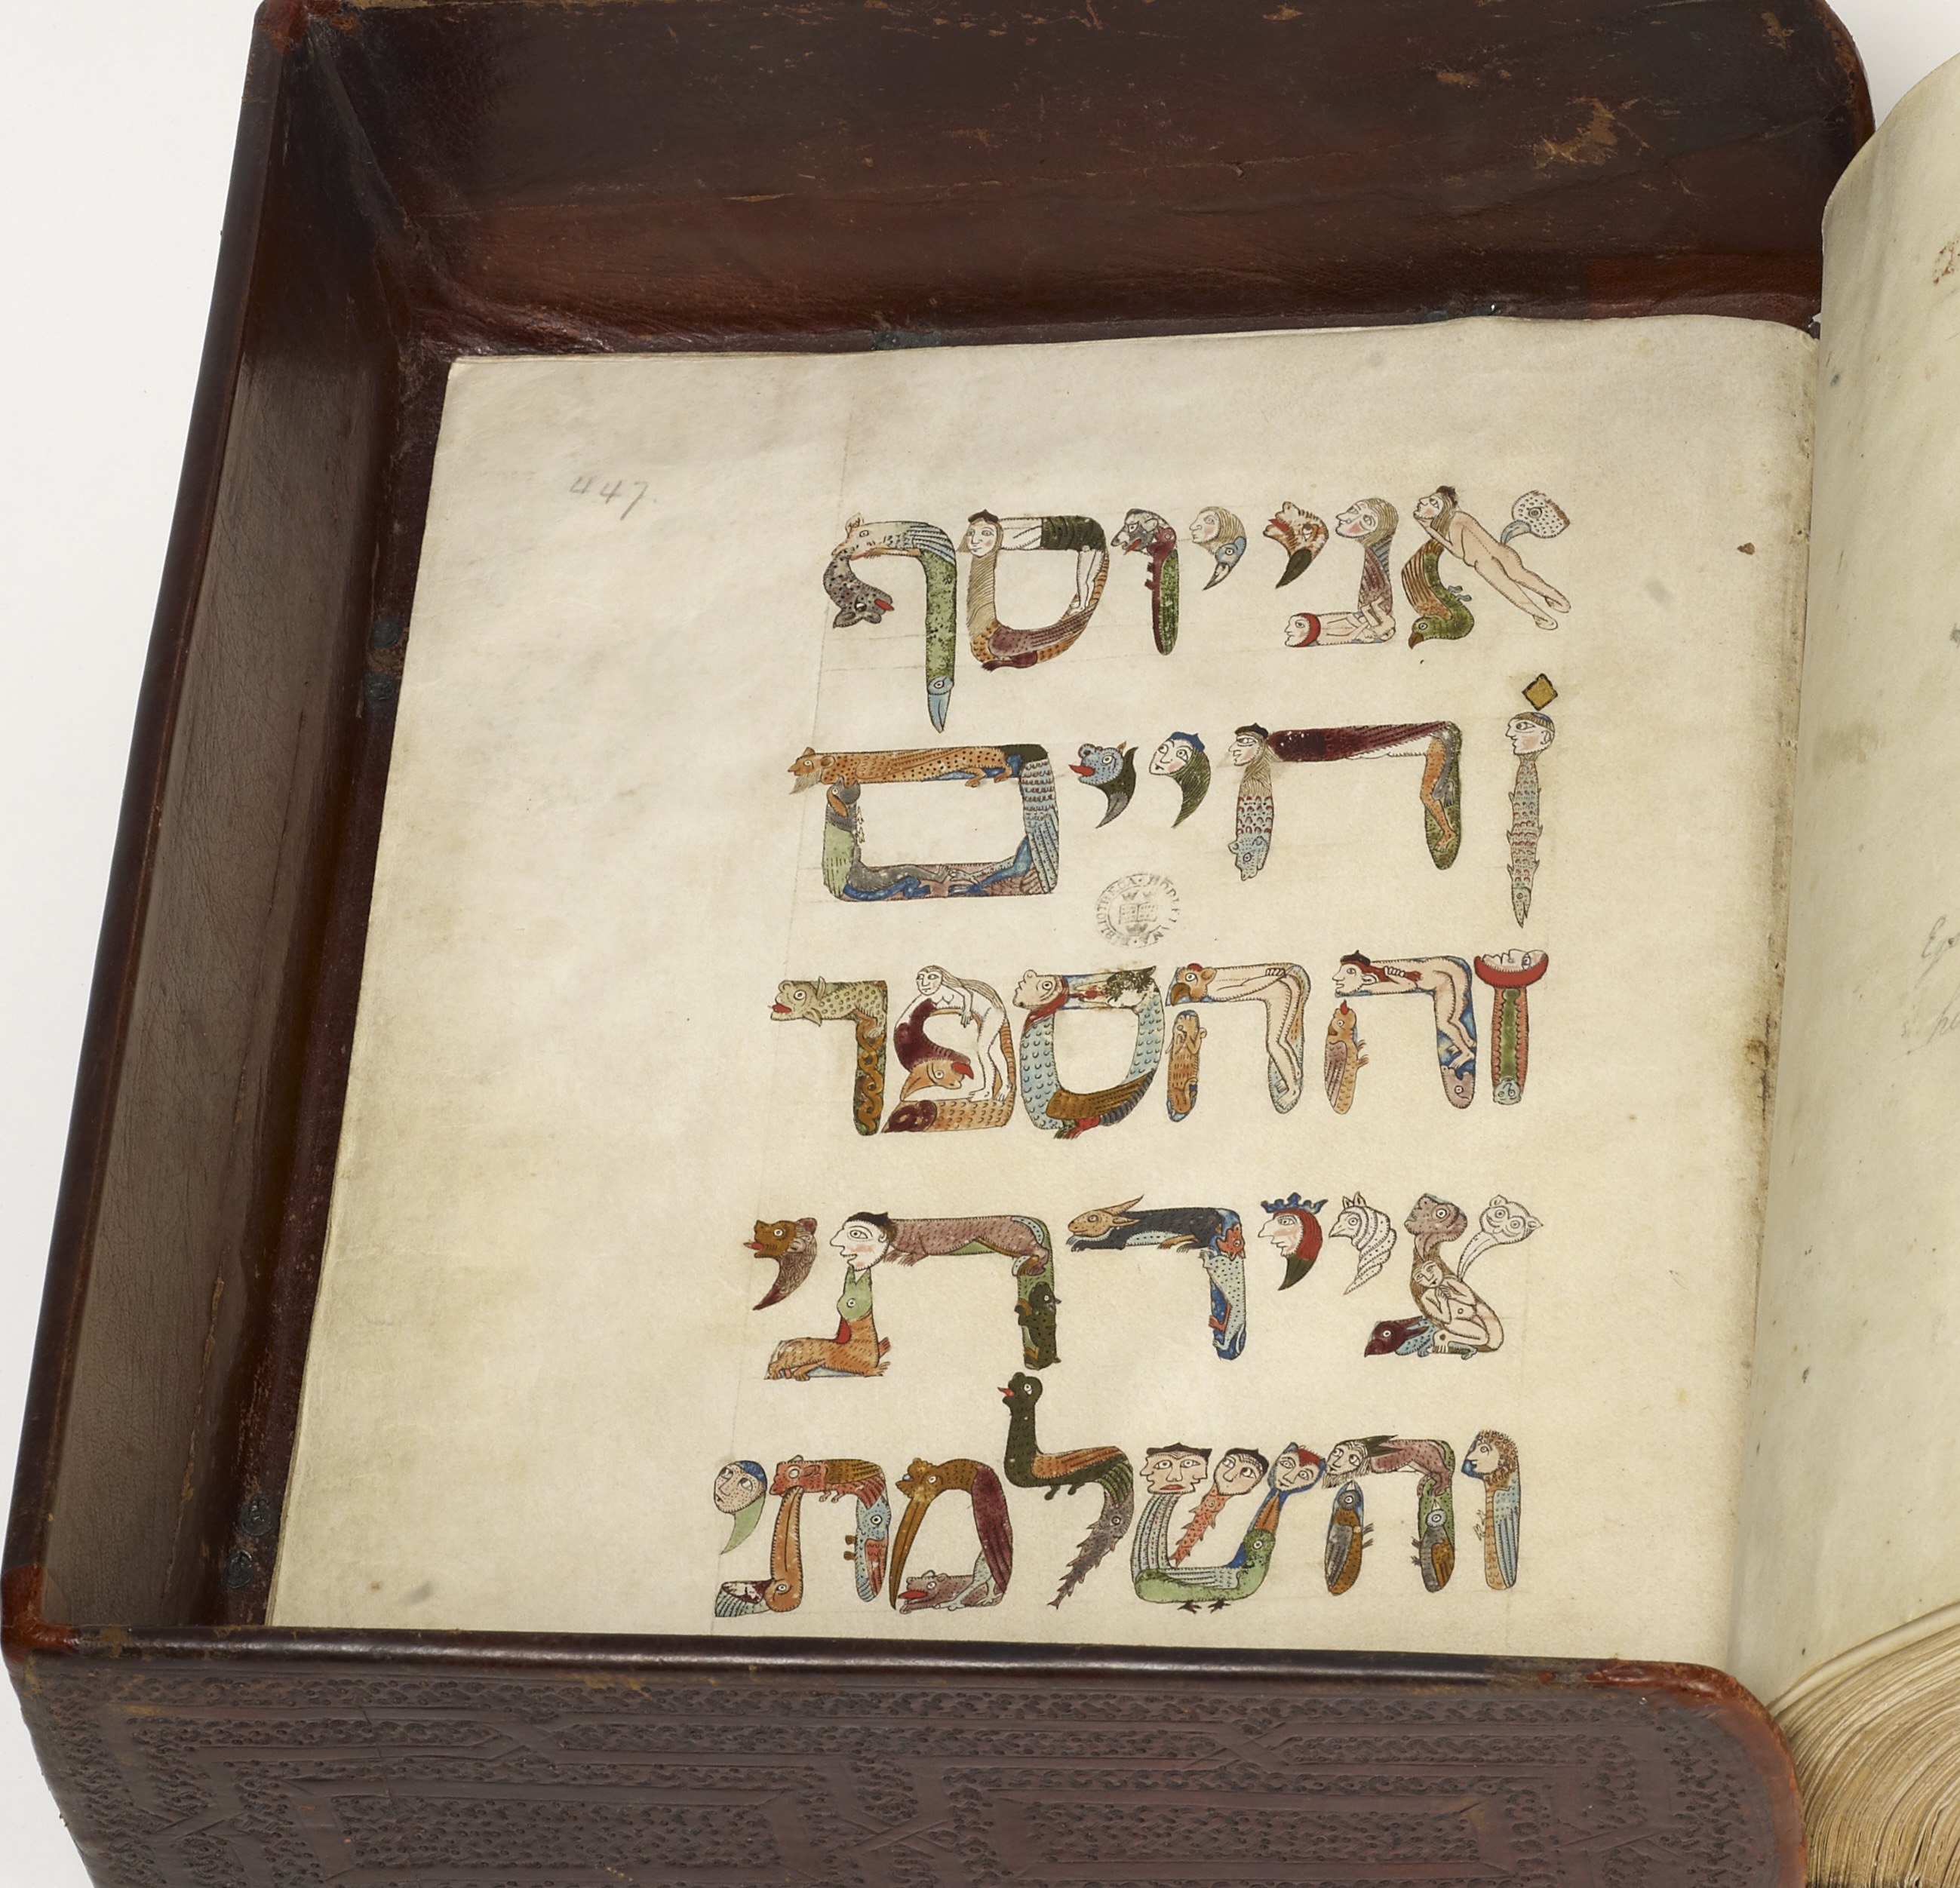 447.
אני יוסף
ן חיים
BIBLIOTHECA BODLEIANA
זה הספר
ציירתי
והשלמתי